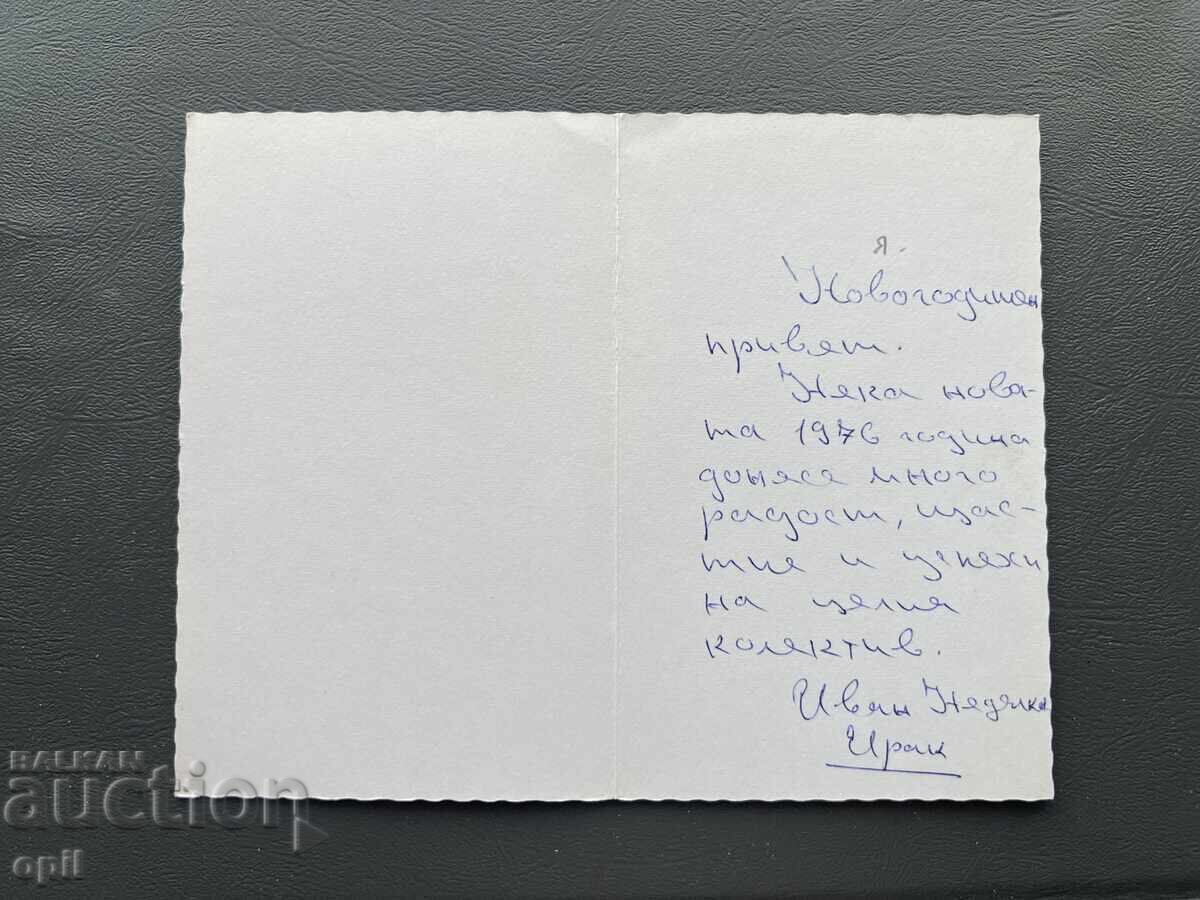 я.
Новогодишен
привет.
Нека нова-
та 1976 година
донесе много
радост, щас-
тие и успехи
на целия
колектив.
Иван Неделка
Ирак
BALKAN
auction
opil